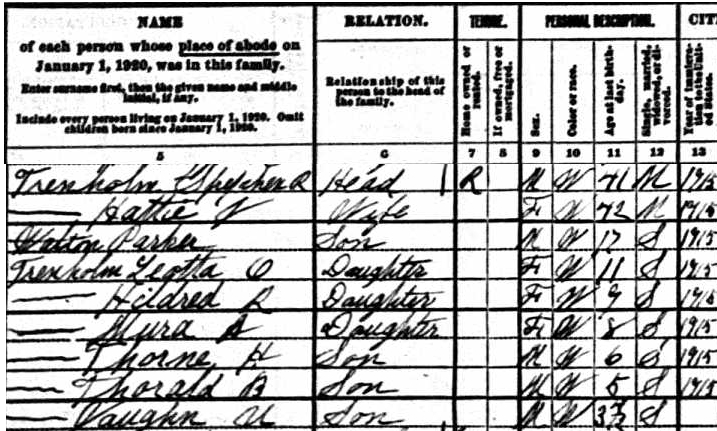 NAME
of each person whose place of abode on
January 1, 1920, was in this family.
Enter surname first, then the given name and middle
initial, if any.
Include every person living on January 1, 1920. Omit
children born since January 1, 1920.
RELATION.
Relationship of this
person to the head of
the family.
TENURE.
Home owned or
rented.
If owned, free or
mortgaged.
PERSONAL DESCRIPTION.
Sex.
Color or race.
Age at last birth-
day.
Single, married,
widowed, or di-
vorced.
CIT
Year of immigra-
tion to the Unit-
ed States.
5 6 7 8 9 10 11 12 13
Trenholm R Head R M W 41 M 1915
— Hattie V Wife F W 42 M 1915
Walton Parker Son M W 17 S 1915
Trenholm Leotta O Daughter F W 11 S 1915
— Hildred R Daughter F W 9 S 1915
— Daughter F W 8 S 1915
— Thorne H Son M W 6 S 1915
— Thorald B Son M W 5 S 1915
— Vaughn U Son M W S